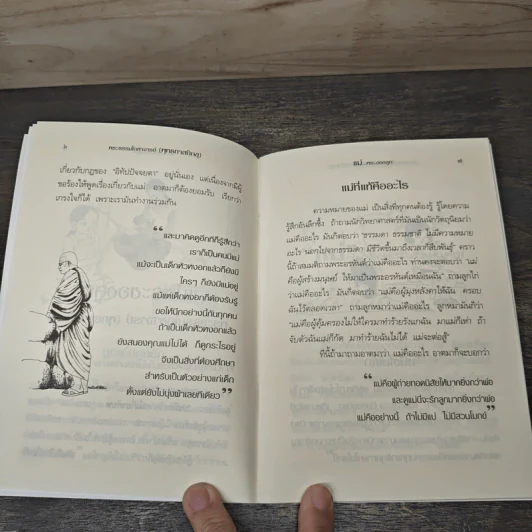 ๖
พระธรรมโกศาจารย์ (พุทธทาสภิกขุ)
เกี่ยวกับกฎของ "อิทัปปัจจยตา" อยู่นั่นเอง แต่เนื่องจากมีผู้
ขอร้องให้พูดเรื่องเกี่ยวกับแม่ อาตมาก็ต้องยอมรับ เรียกว่า
เกรงใจก็ได้ เพราะเรามันทำงานร่วมกัน
"และมาคิดดูอีกทีก็รู้สึกว่า
เราก็เป็นคนมีแม่
แม้จะเป็นเด็กตัวหงอกแล้วก็ยังมี
ใครๆ ก็ยังมีแม่อยู่
แม้แต่เด็กหงอกก็ต้องรับรู้
ขอให้นึกอย่างนี้กันทุกคน
ถ้าเป็นเด็กตัวหงอกแล้ว
ยังสนองคุณแม่ไม่ได้ ก็ดูกระไรอยู่
จึงเป็นสิ่งที่ต้องศึกษา
สำหรับเป็นตัวอย่างแก่เด็ก
ตั้งแต่ยังไม่นุ่งผ้าเลยทีเดียว"
แม่
๗
แม่ที่แท้คืออะไร
ความหมายของแม่ เป็นสิ่งที่ทุกคนต้องรู้ รู้โดยความ
รู้สึกอันลึกซึ้ง ถ้าถามนักวิทยาศาสตร์ที่มันเป็นนักวัตถุนิยมว่า
แม่คืออะไร มันก็ตอบว่า "ธรรมดา ธรรมชาติ ไม่มีความหมาย
อะไร นอกไปจากธรรมดา มีชีวิตขึ้นมาถึงเวลาก็สืบพันธุ์" คราว
นี้ถ้าสมมติถามพระอรหันต์ว่าแม่คืออะไร ท่านคงจะตอบว่า "แม่
คือผู้สร้างมนุษย์ ให้มาเป็นพระอรหันต์เหมือนฉัน" ถามลูกไก่
ว่าแม่คืออะไร มันก็ตอบว่า "แม่คือผู้มุงหลังคาให้ฉัน ครอบ
ฉันไว้ตลอดเวลา" ถามลูกหมาว่าแม่คืออะไร ลูกหมามันก็ว่า
"แม่คือผู้คุ้มครองไม่ให้ใครมาทำร้ายรังแกฉัน มาแม่ก็เห่า ถ้า
จับตัวฉันแม่ก็กัด มาทำร้ายฉันไม่ได้ แม่จะต่อสู้"
ทีนี้ถ้ามาถามอาตมาว่า แม่คืออะไร อาตมาก็จะบอกว่า
"แม่คือผู้ถ่ายทอดนิสัยให้มากยิ่งกว่าพ่อ
และดูแม่นี้จะรักลูกมากยิ่งกว่าพ่อ
แม่คืออย่างนี้ ถ้าไม่มีแม่ ไม่มีสวนโมกข์"